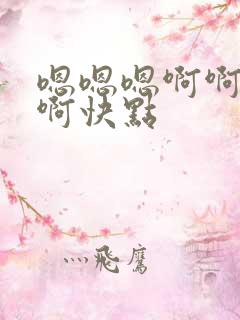 嗯嗯嗯啊啊
啊快點
灬飛鷹